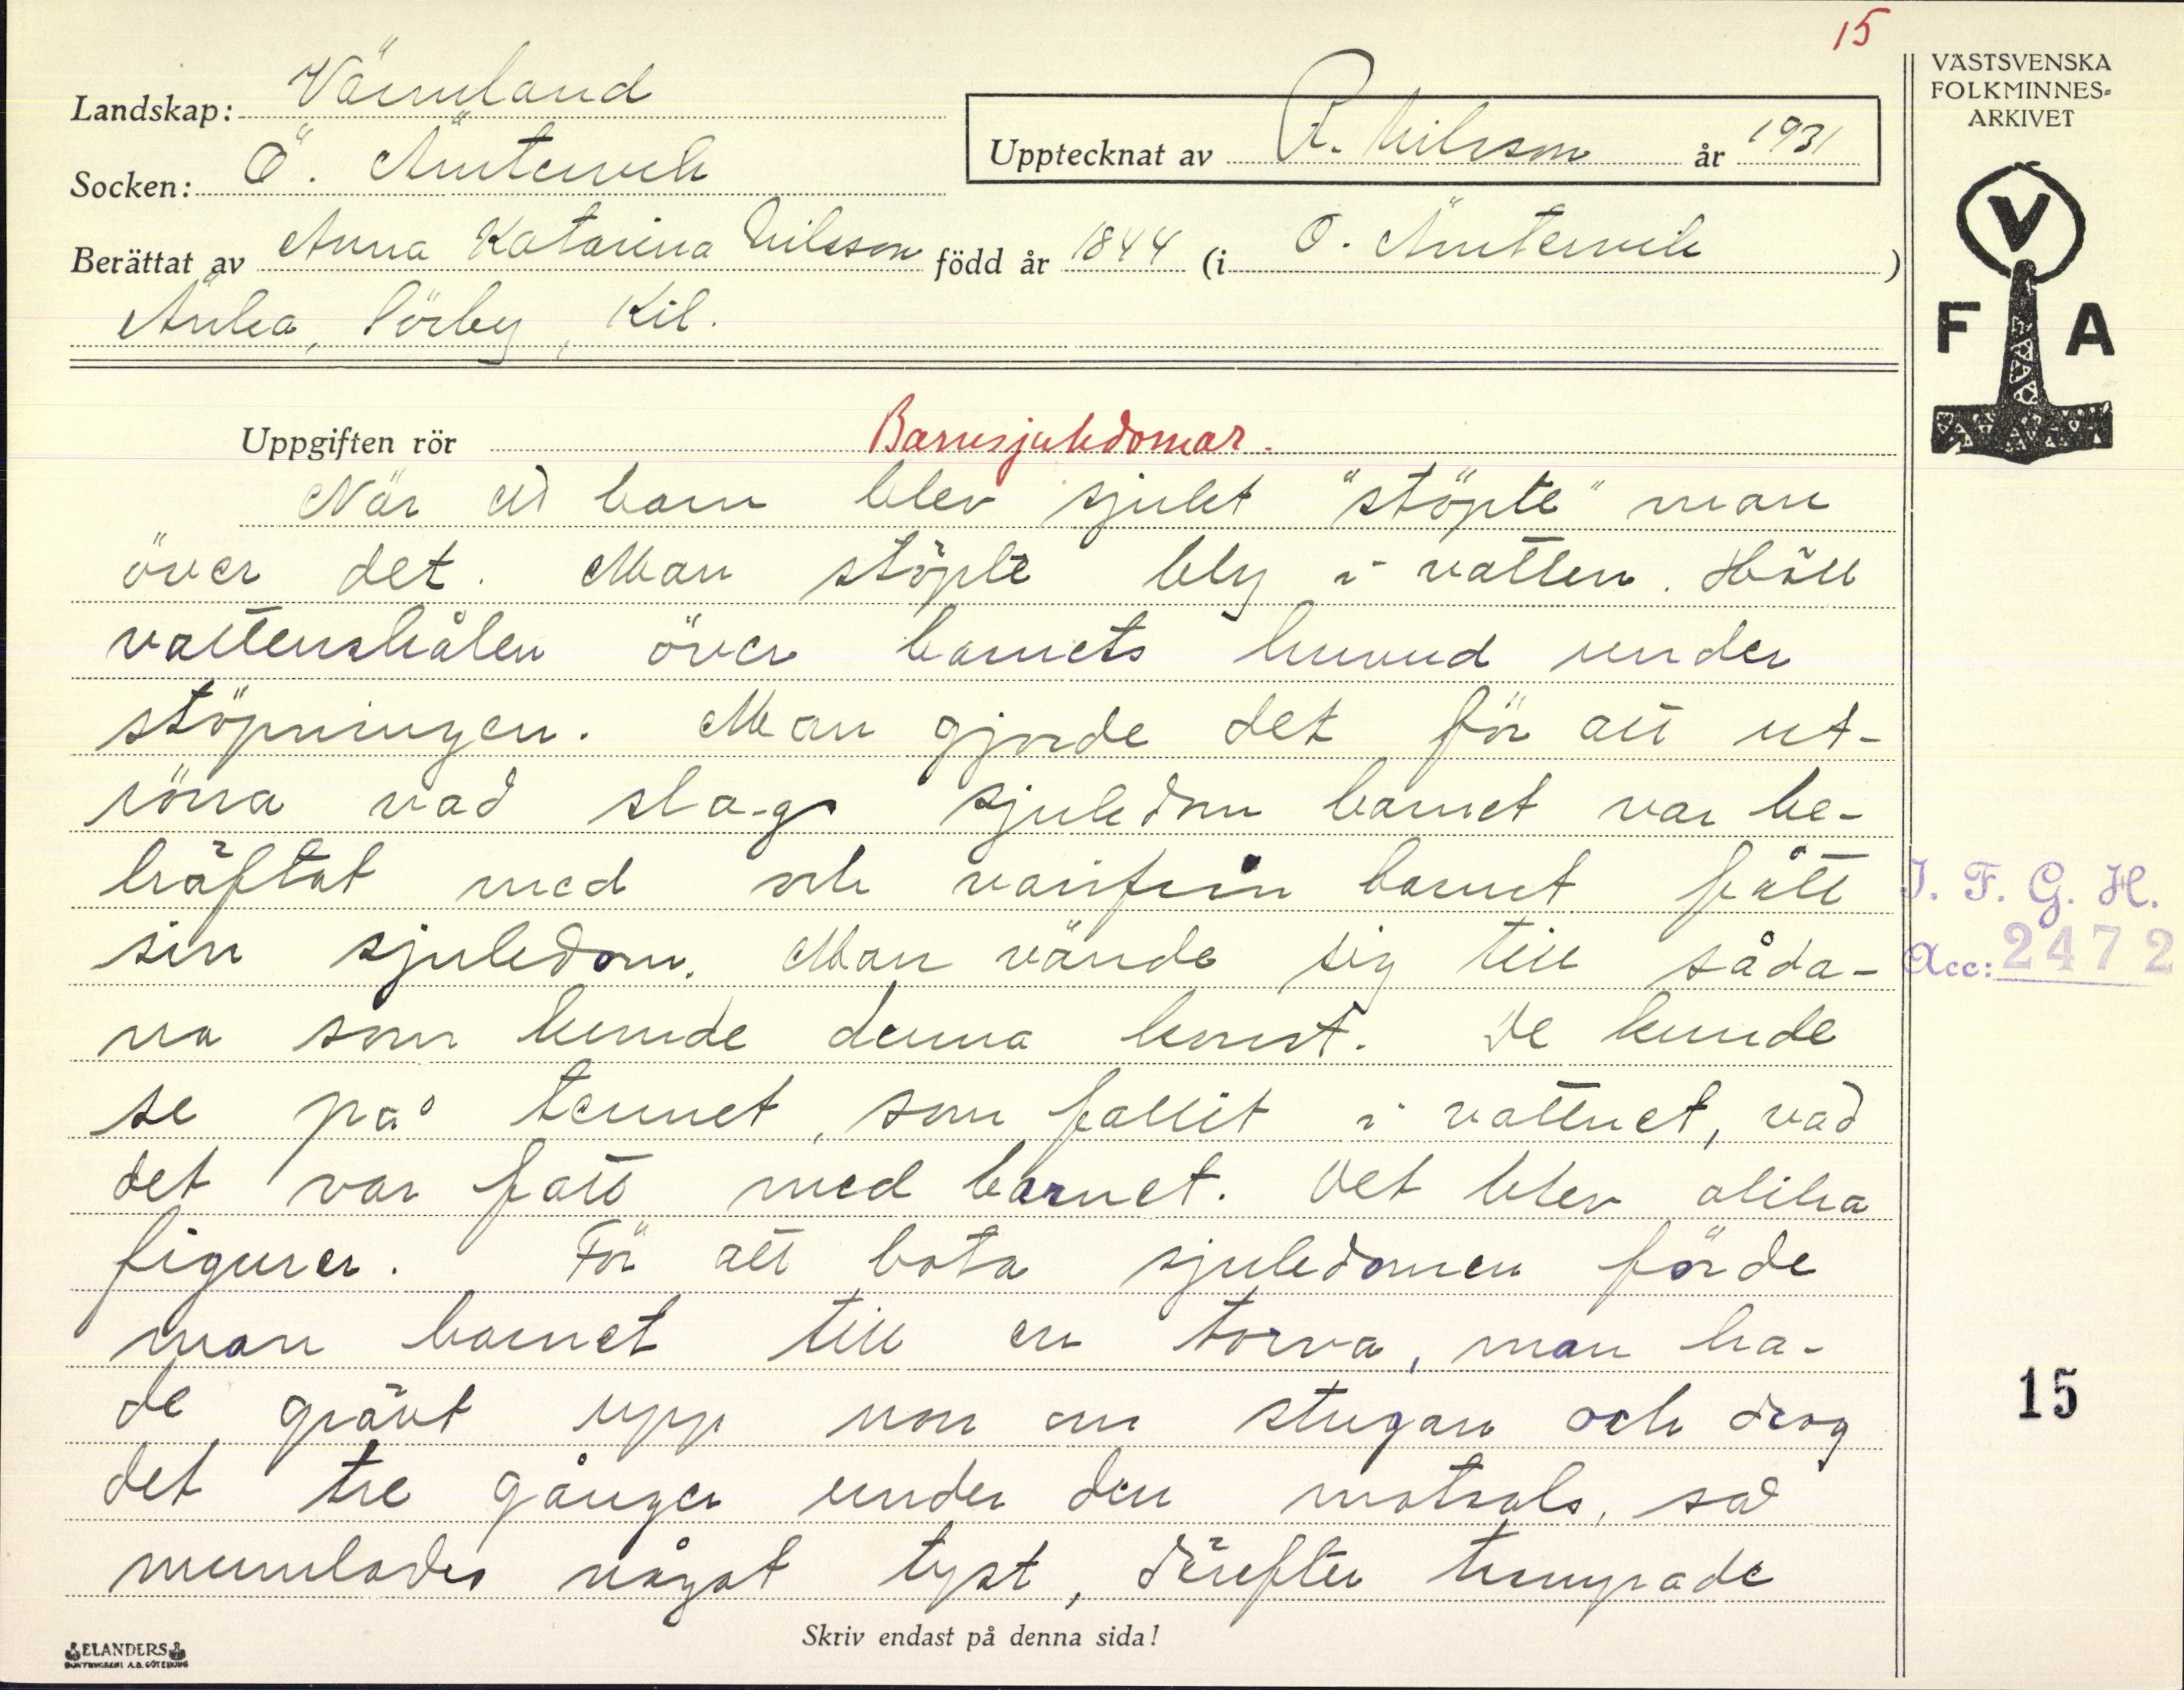 15
VÄSTSVENSKA
FOLKMINNES-
ARKIVET
Landskap: Värmland
Upptecknat av R. Nilsson år 1931
Socken: Ö. Ämtervik
Berättat av Anna Katarina Nilsson född år 1844 (i Ö. Ämtervik)
Änka, Sörby, Kil.
V
F A
Uppgiften rör Barnsjukdomar.
När ett barn blev sjukt "stöpte" man
över det. Man stöpte bly i vatten. Höll
vattenskålen över barnets huvud under
stöpningen. Man gjorde det för att ut-
röna vad slags sjukdom barnet var be-
häftat med och varifrån barnet fått
sin sjukdom. Man vände sig till såda-
na som kunde denna konst. De kunde
se på tennet, som fallit i vattnet, vad
det var fatt med barnet. Det blev olika
figurer. För att bota sjukdomen förde
man barnet till en torva, man ha-
de grävt upp norr om stugan och drog
det tre gånger under den motsols, så
mumlades något tyst, därefter trampade
Skriv endast på denna sida!
I. F. G. H.
Acc: 2472
15
ELANDERS
BOKTRYCKERI A.B. GÖTEBORG